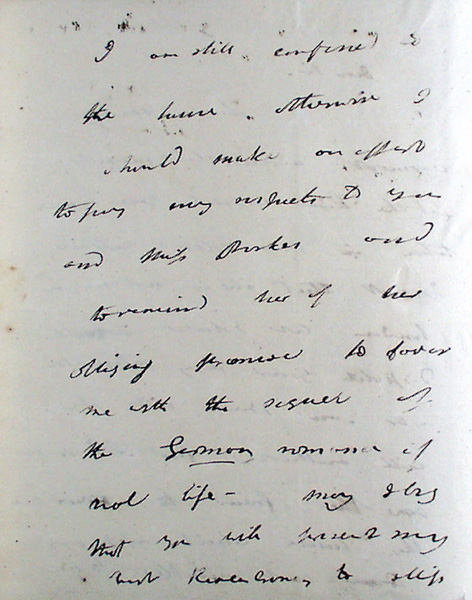 I am still confined to
the house otherwise I
should make an effort
to pay my respects to you
and Miss Parkes and
to remind her of her
obliging promise to favor
me with the sequel of
the German romance of
not life - may I beg
that you will present my
best to Miss